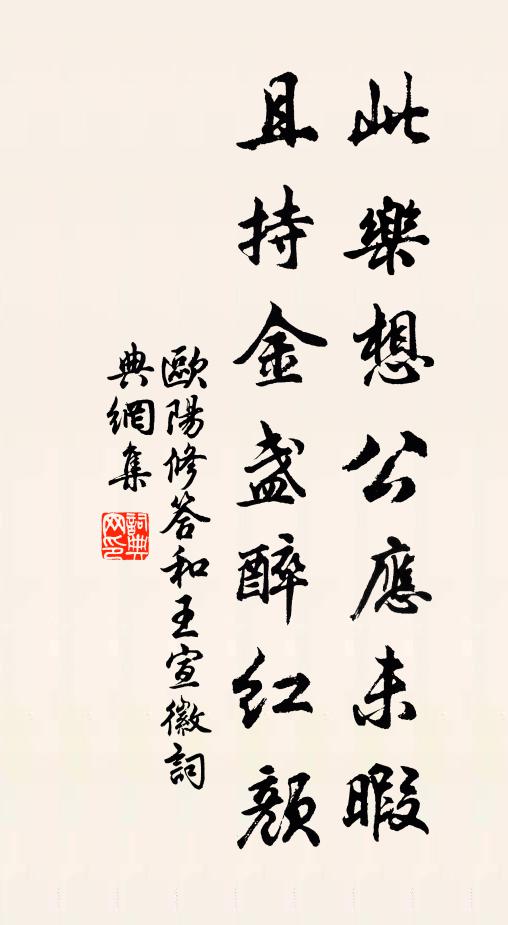 此樂想公應未暇
且持金盏醉红顏
歐陽修答和王宣徽詞
典網集
詞典網印